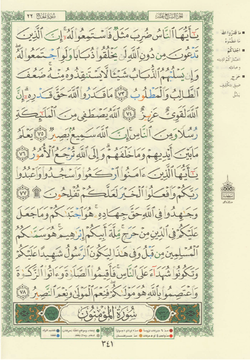 يَٰٓأَيُّهَا ٱلنَّاسُ ضُرِبَ مَثَلٌ فَٱسْتَمِعُوا۟ لَهُۥٓ إِنَّ ٱلَّذِينَ
تَدْعُونَ مِن دُونِ ٱللَّهِ لَن يَخْلُقُوا۟ ذُبَابًا وَلَوِ ٱجْتَمَعُوا۟ لَهُۥ
وَإِن يَسْلُبْهُمُ ٱلذُّبَابُ شَيْـًٔا لَّا يَسْتَنقِذُوهُ مِنْهُ ضَعُفَ
ٱلطَّالِبُ وَٱلْمَطْلُوبُ ٧٣ مَا قَدَرُوا۟ ٱللَّهَ حَقَّ قَدْرِهِۦٓ إِنَّ
ٱللَّهَ لَقَوِىٌّ عَزِيزٌ ٧٤ ٱللَّهُ يَصْطَفِى مِنَ ٱلْمَلَٰٓئِكَةِ
رُسُلًا وَمِنَ ٱلنَّاسِ إِنَّ ٱللَّهَ سَمِيعٌۢ بَصِيرٌ ٧٥ يَعْلَمُ مَا
بَيْنَ أَيْدِيهِمْ وَمَا خَلْفَهُمْ وَإِلَى ٱللَّهِ تُرْجَعُ ٱلْأُمُورُ ٧٦
يَٰٓأَيُّهَا ٱلَّذِينَ ءَامَنُوا۟ ٱرْكَعُوا۟ وَٱسْجُدُوا۟ وَٱعْبُدُوا۟
رَبَّكُمْ وَٱفْعَلُوا۟ ٱلْخَيْرَ لَعَلَّكُمْ تُفْلِحُونَ ۩ ٧٧
وَجَٰهِدُوا۟ فِى ٱللَّهِ حَقَّ جِهَادِهِۦ هُوَ ٱجْتَبَىٰكُمْ وَمَا جَعَلَ
عَلَيْكُمْ فِى ٱلدِّينِ مِنْ حَرَجٍ مِّلَّةَ أَبِيكُمْ إِبْرَٰهِيمَ هُوَ سَمَّىٰكُمُ
ٱلْمُسْلِمِينَ مِن قَبْلُ وَفِى هَٰذَا لِيَكُونَ ٱلرَّسُولُ شَهِيدًا عَلَيْكُمْ
وَتَكُونُوا۟ شُهَدَآءَ عَلَى ٱلنَّاسِ فَأَقِيمُوا۟ ٱلصَّلَوٰةَ وَءَاتُوا۟ ٱلزَّكَوٰةَ
وَٱعْتَصِمُوا۟ بِٱللَّهِ هُوَ مَوْلَىٰكُمْ فَنِعْمَ ٱلْمَوْلَىٰ وَنِعْمَ ٱلنَّصِيرُ ٧٨
سُورَةُ المُؤْمِنُونَ
٣٤١